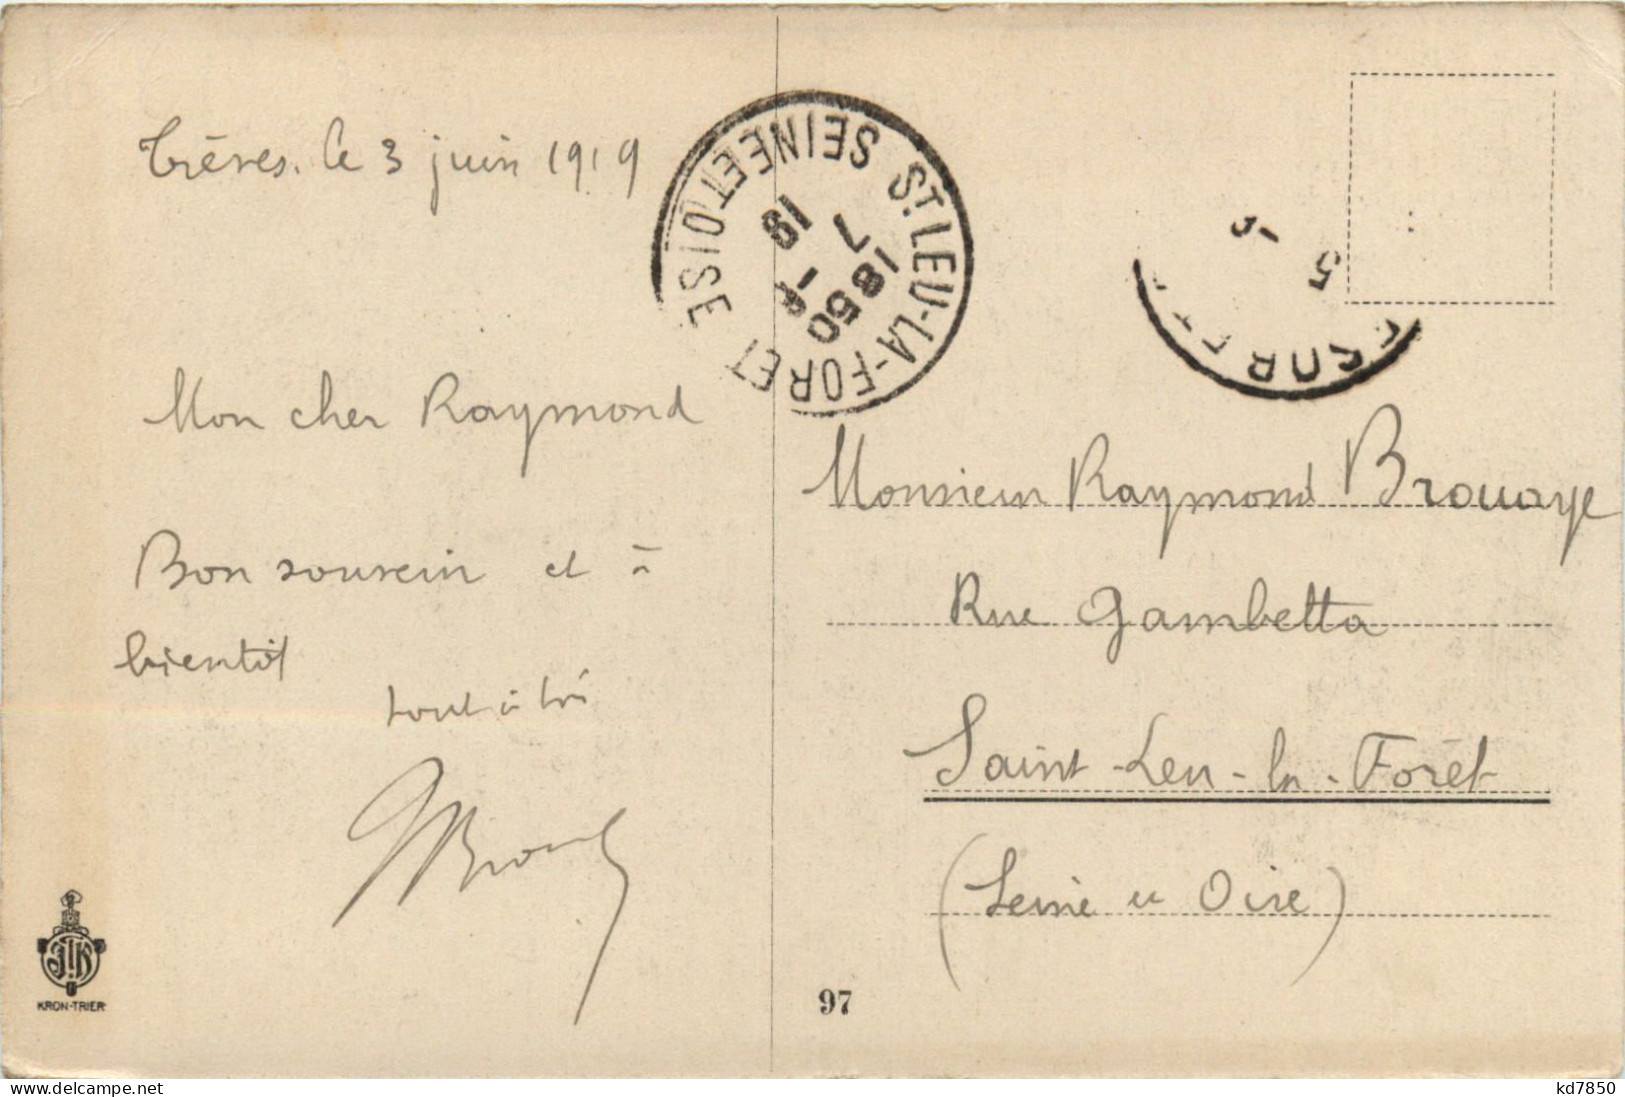 Trèves. le 3 juin 1919
Mon cher Raymond
Bon souvenir et à
bientôt
tout à toi
ST LEU-LA-FORET
SEINE ET OISE
1850
7 - 6
19
5 -
Monsieur Raymond Brouaye
Rue Gambetta
Saint-Leu-la-Forêt
(Seine et Oise)
KRON-TRIER
97
www.delcampe.net
kd7850